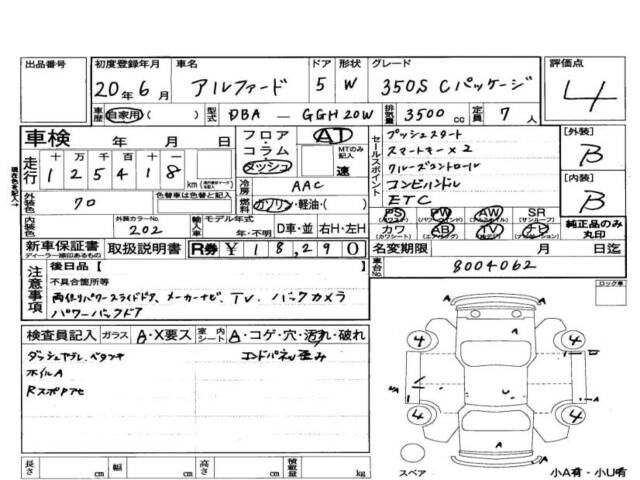 出品番号
初度登録年月
車名
ドア 形状
グレード
評価点
20年6月
アルファード
5 W
350S Cパッケージ
4
車歴 自家用( ) 型式 DBA - GGH20W 排気量 3500cc 定員 7人
車検 年 月 日
走行 十 万 千 百 十 一
125418 km
フロア
コラム
メッシュ
AT
MTのみ記入
速
冷房 AAC
燃料 ガソリン・軽油・( )
セールスポイント
プッシュスタート
スマートキー×2
クルーズコントロール
コンビハンドル
ETC
PS PW AW SR
(パワステ) (パワーウィンドウ) (アルミホイル) (サンルーフ)
カワ AB TV ナビ
(カワシート) (エアバッグ)
[外装]
B
[内装]
B
純正品のみ丸印
現在色を記入→
外装色 70 色替車は色替色を記入
内装色 外装カラーNo. 202
輸入車 モデル年式
年・不明 D車・並 右H・左H
新車保証書
ディーラー捺印あるもの
取扱説明書
R券 ¥18,290
名変期限 月 日
車台No. 8004062
注意事項
後日品【 】
不具合箇所等
両側パワースライドドア、メーカーナビ、TV、バックカメラ
パワーバックドア
ロック車
検査員記入 ガラス A・X要ス 室内シート A・コゲ・穴・汚れ・破れ
エンドパネル歪み
ホイルA
A
4 4
A
4 4
A
A
スペア
小A有・小U有
長さ cm 幅 cm 高さ cm 積載量 kg